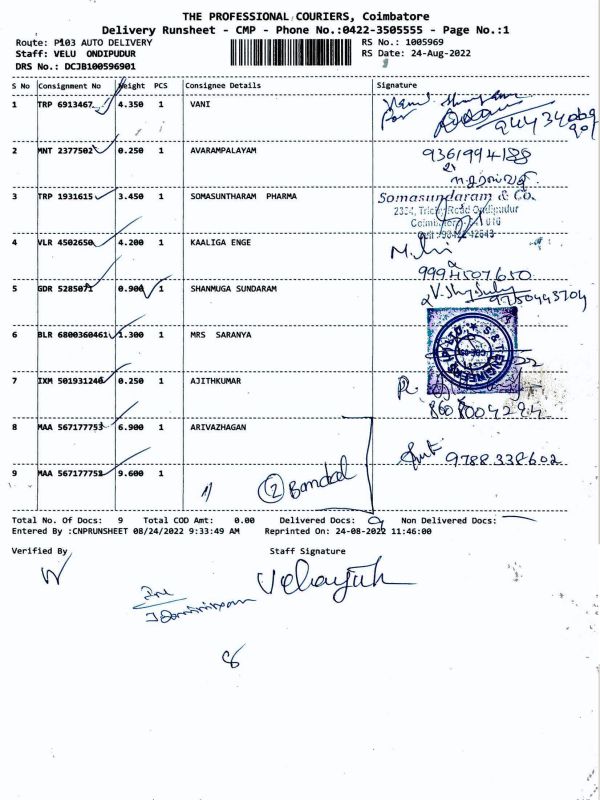 THE PROFESSIONAL COURIERS, Coimbatore
Delivery Runsheet - CMP - Phone No.:0422-3505555 - Page No.:1
Route: P103 AUTO DELIVERY RS No.: 1005969
Staff: VELU ONDIPUDUR RS Date: 24-Aug-2022
DRS No.: DCJB100596901
S No Consignment No Weight PCS Consignee Details Signature
1 TRP 6913467 4.350 1 VANI
2 MNT 2377502 0.250 1 AVARAMPALAYAM 9361994188
3 TRP 1931615 3.450 1 SOMASUNTHARAM PHARMA Somasundaram & Co.
2334, Trichy Road Ondipudur
4 VLR 4502650 4.200 1 KAALIGA ENGE
9994507650
5 GDR 5285071 0.900 1 SHANMUGA SUNDARAM
6 BLR 6800360461 1.300 1 MRS SARANYA
7 IXM 501931246 0.250 1 AJITHKUMAR
8608004294
8 MAA 567177753 6.900 1 ARIVAZHAGAN
9788338602
9 MAA 567177752 9.600 1
Total No. Of Docs: 9 Total COD Amt: 0.00 Delivered Docs: 9 Non Delivered Docs:
Entered By :CNPRUNSHEET 08/24/2022 9:33:49 AM Reprinted On: 24-08-2022 11:46:00
Verified By Staff Signature
8